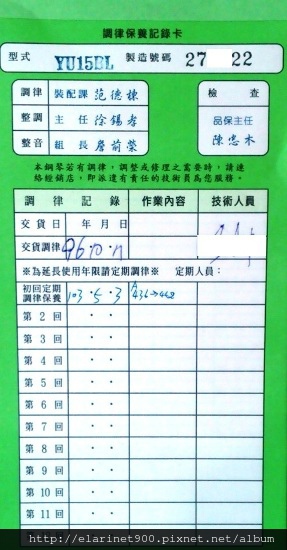 調律保養記錄卡
型式 YU15BL 製造號碼 27 22
調律 裝配課 范德棟 檢查
整調 主任 徐錫孝 品保主任
整音 組長 詹前榮 陳忠木
本鋼琴若有調律，調整或修理之需要時，請連
絡經銷店，即派遣有責任的技術員爲您服務。
調律記錄 作業內容 技術人員
交貨日 年月日
交貨調律 96.10.17
※為延長使用年限請定期調律※ 定期人員：
初回定期調律保養 103.5.3 A 436→442
第2回 ..
第3回 ..
第4回 ..
第5回 ..
第6回 ..
第7回 ..
第8回 ..
第9回 ..
第10回 ..
第11回 ..
http://elarinet900.pixnet.net/album